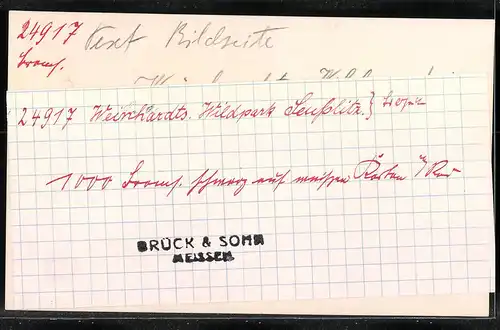 24917 Text Bildseite
Broms.
24917 Weinhardts. Wildpark Seußlitz.}
1000 Broms. schwarz auf weißen Karton
BRÜCK & SOHN
MEISSEN